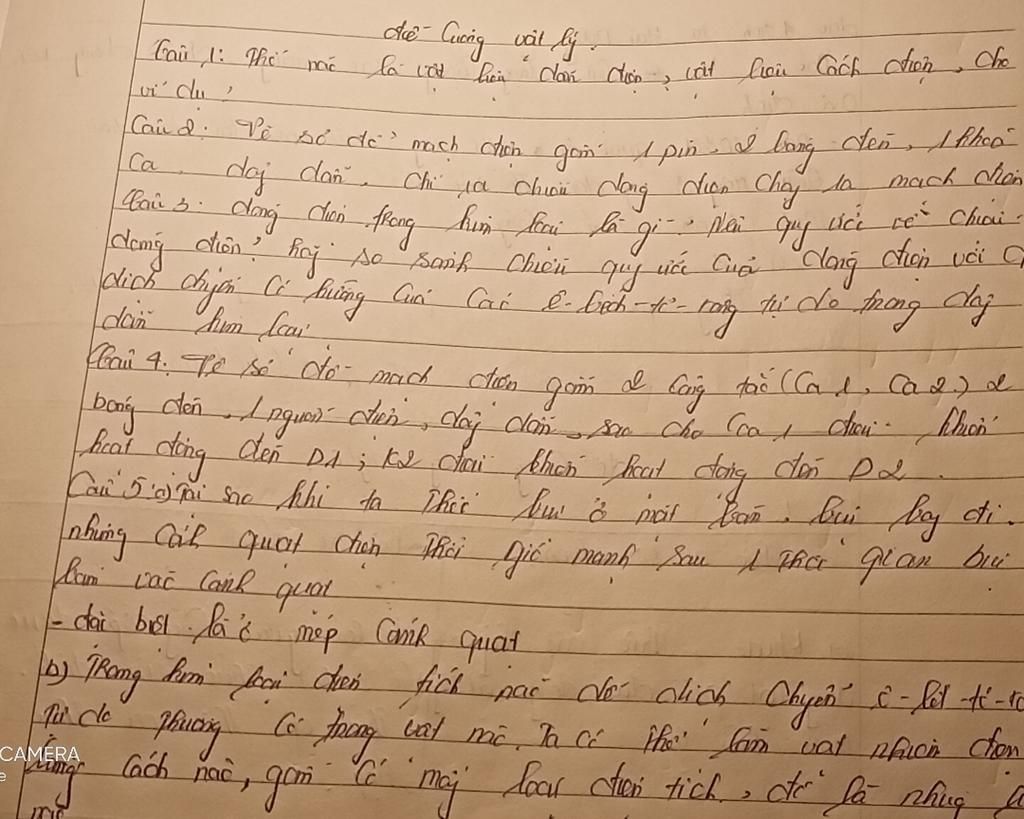 đề Cương vật lý.
Câu 1: Thế nào là vật liệu dẫn điện, vật liệu cách điện, cho
ví dụ,
Câu 2. Vẽ sơ đồ mạch điện gồm 1 pin, 2 bóng đèn, 1 khoá
Ca dây dẫn. Chỉ ra chiều dòng điện chạy ra mạch điện
Câu 3. dòng điện trong kim loại là gì? Nêu quy ước về chiều
dòng điện? hãy so sánh chiều quy ước của dòng điện với
dịch chuyển có hướng của các ê-lếch-tơ-rong tự do trong dây
dẫn kim loại
Câu 4. Vẽ sơ đồ mạch điện gồm 2 công tắc (Ca 1, Ca 2) 2
bóng đèn, 1 nguồn điện, dây dẫn, sao cho Ca 1 điều khiển
hoạt động đèn Đ1; K2 điều khiển hoạt động đèn Đ2.
Câu 5: a) Tại sao khi ta thổi bụi ở mặt bàn, bụi bay đi.
nhưng cánh quạt điện thổi gió mạnh sau 1 thời gian bụi
bám vào cánh quạt
- đặc biệt là ở mép cánh quạt
b) Trong kim loại điện tích nào dễ dịch chuyển ê-lét-tơ-ro
Tự do thường có trong vật nào. Ta có thể làm vật nhiễm điện
bằng cách nào, gồm có mấy loại điện tích, đó là những
nào
CAMERA